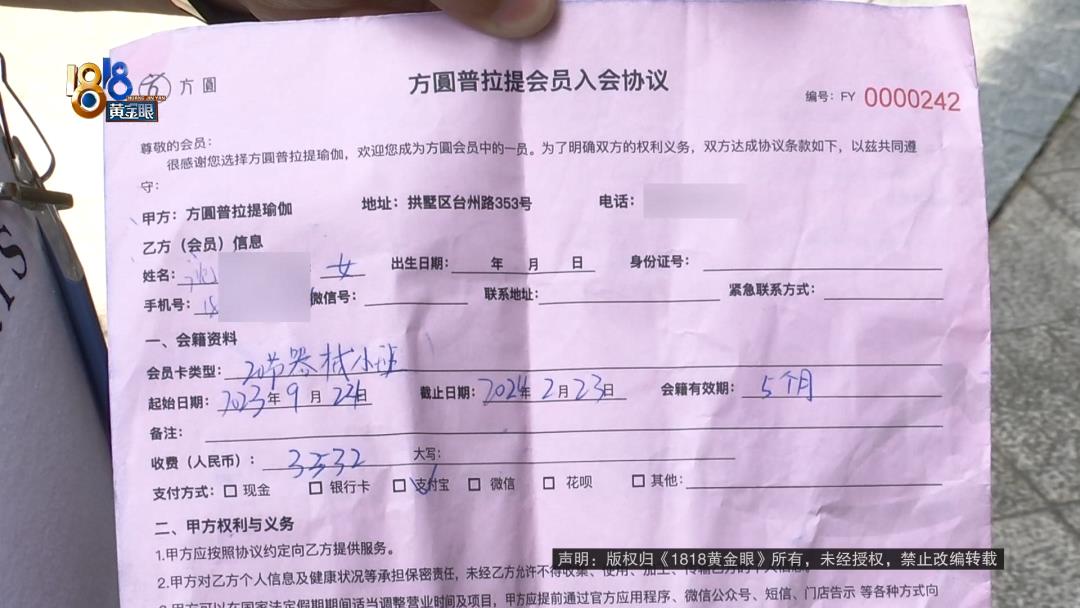 1818
HUANG JIN YAN
黄金眼
方圓
方圓普拉提会员入会协议
编号：FY 0000242
尊敬的会员：
很感谢您选择方圓普拉提瑜伽，欢迎您成为方圓会员中的一员。为了明确双方的权利义务，双方达成协议条款如下，以兹共同遵
守：
甲方：方圓普拉提瑜伽 地址：拱墅区台州路353号 电话：
乙方（会员）信息
姓名： 女 出生日期： 年 月 日 身份证号：
手机号：18 微信号： 联系地址： 紧急联系方式：
一、会籍资料
会员卡类型：20节器材小班
起始日期：2023年9月24日 截止日期：2024年2月23日 会籍有效期：5个月
备注：
收费（人民币）：3532 大写：
支付方式：□ 现金 □ 银行卡 □ 支付宝 □ 微信 □ 花呗 □ 其他：
二、甲方权利与义务
1.甲方应按照协议约定向乙方提供服务。
2.甲方对乙方个人信息及健康状况等承担保密责任，未经乙方允许不得收集、使用、加工、传输乙方的个人信息。
3.甲方可以在国家法定假期期间适当调整营业时间及项目，甲方应提前通过官方应用程序、微信公众号、短信、门店告示 等各种方式向
声明：版权归《1818黄金眼》所有，未经授权，禁止改编转载